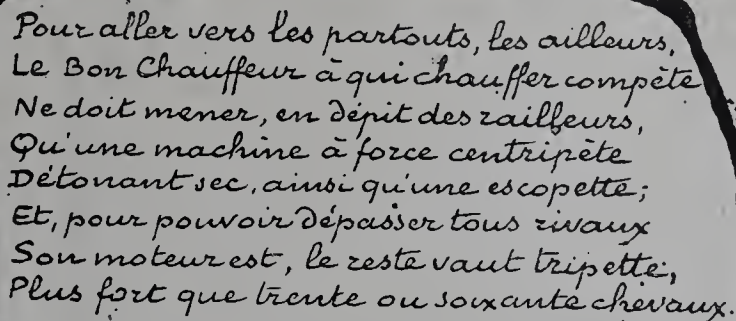 Pour aller vers les partouts, les ailleurs,
Le Bon Chauffeur à qui chauffer compète
Ne doit mener, en dépit des railleurs,
Qu'une machine à force centripète
Détonant sec, ainsi qu'une escopette;
Et, pour pouvoir dépasser tous rivaux
Son moteur est, le reste vaut tripette,
Plus fort que trente ou soixante chevaux.